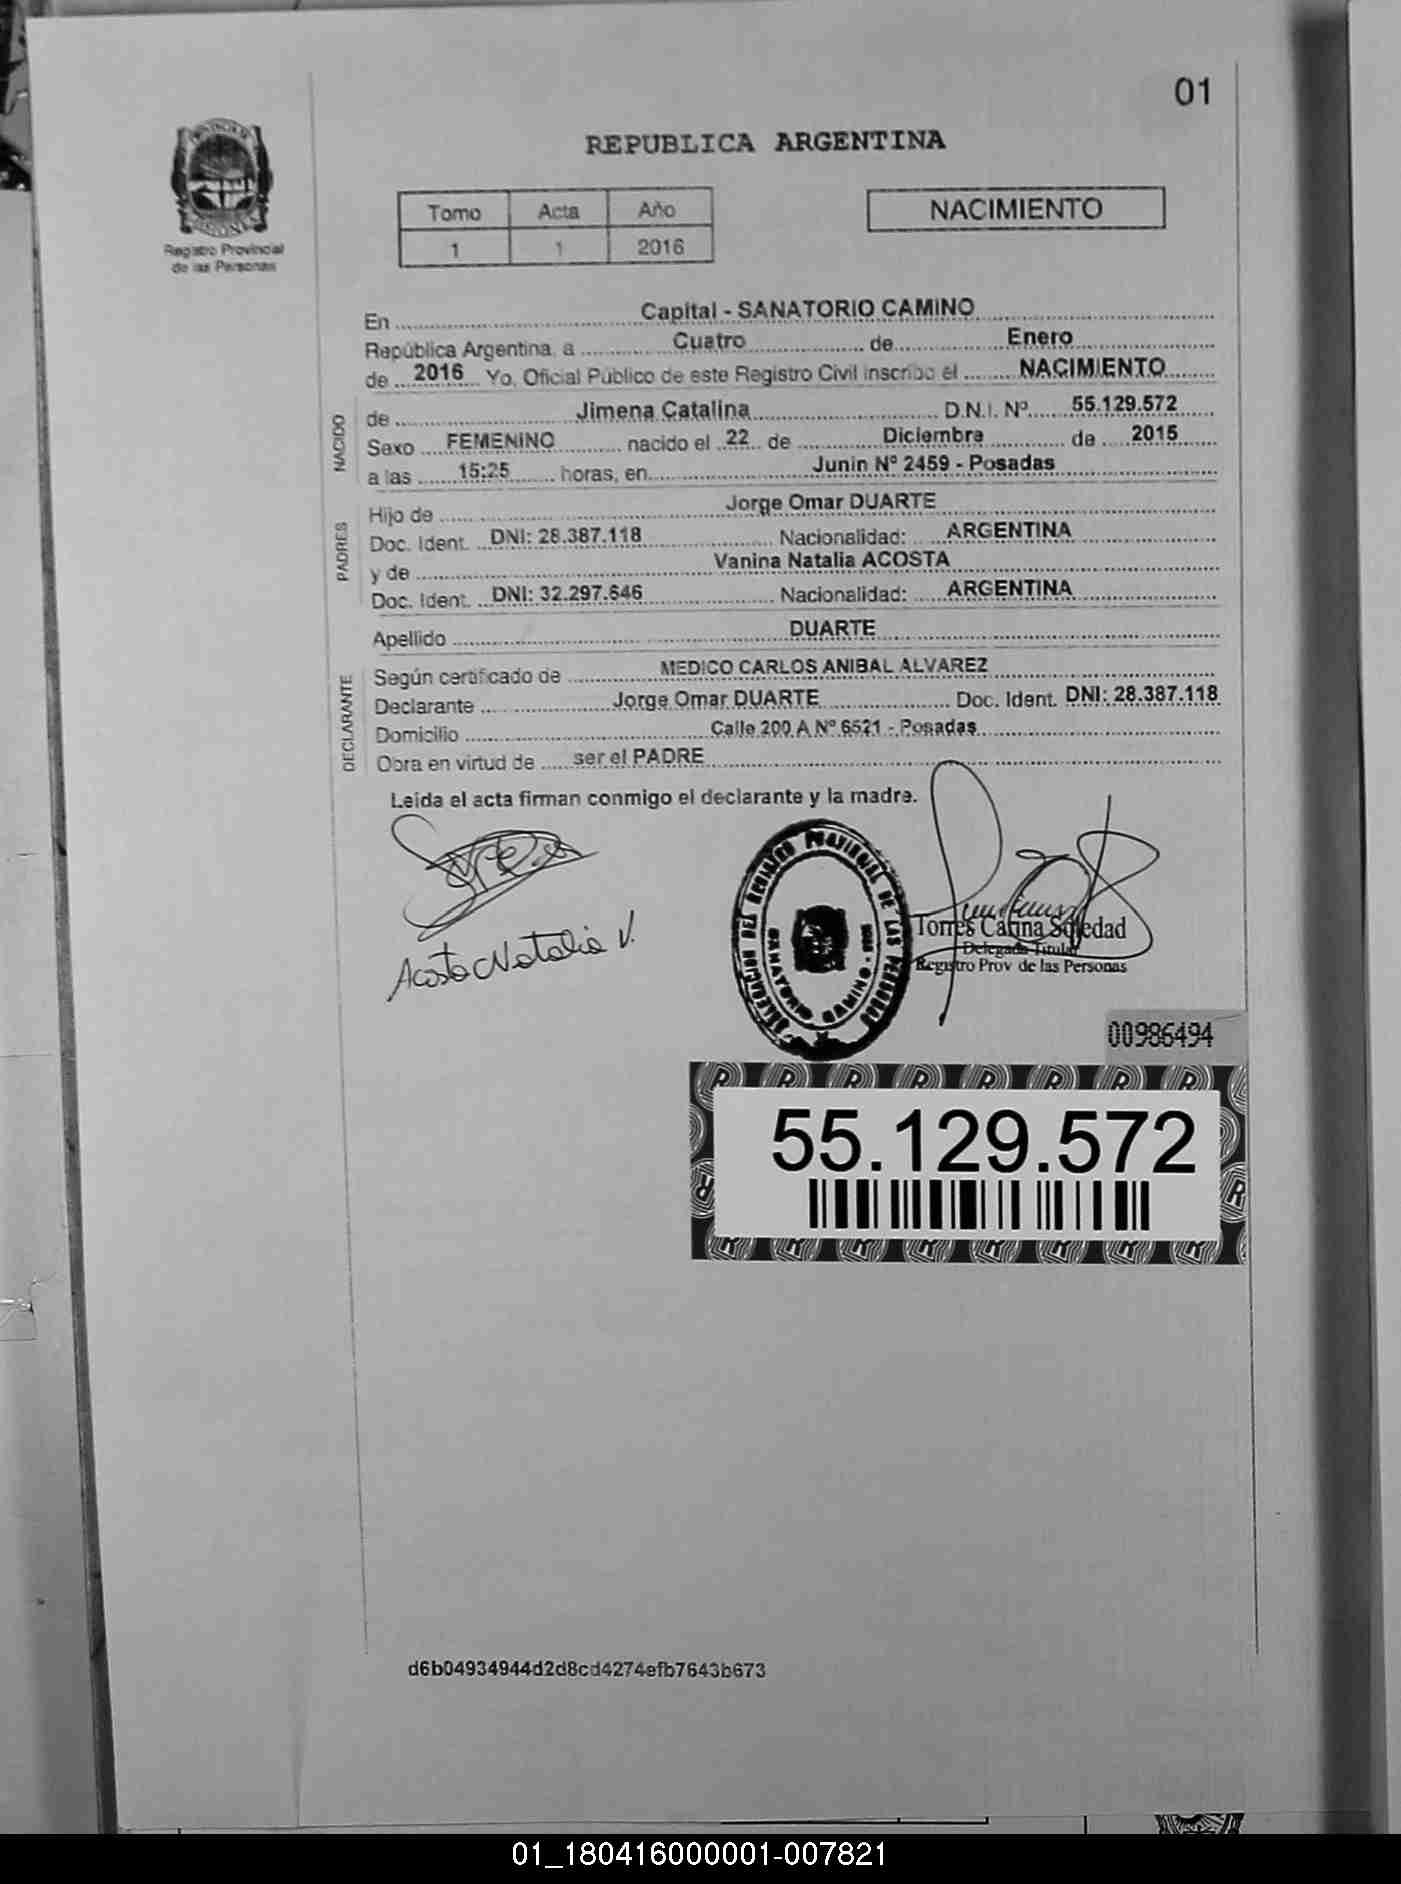 01
REPUBLICA ARGENTINA
Registro Provincial
de las Personas
Tomo Acta Año
1 1 2016
NACIMIENTO
En Capital - SANATORIO CAMINO
República Argentina, a Cuatro de Enero
de 2016 Yo, Oficial Público de este Registro Civil inscribo el NACIMIENTO
NACIDO
de Jimena Catalina D.N.I. Nº 55.129.572
Sexo FEMENINO nacido el 22 de Diciembre de 2015
a las 15:25 horas, en Junin Nº 2459 - Posadas
PADRES
Hijo de Jorge Omar DUARTE
Doc. Ident. DNI: 28.387.118 Nacionalidad: ARGENTINA
y de Vanina Natalia ACOSTA
Doc. Ident. DNI: 32.297.646 Nacionalidad: ARGENTINA
Apellido DUARTE
DECLARANTE
Según certificado de MEDICO CARLOS ANIBAL ALVAREZ
Declarante Jorge Omar DUARTE Doc. Ident. DNI: 28.387.118
Domicilio Calle 200 A Nº 6521 - Posadas
Obra en virtud de ser el PADRE
Leida el acta firman conmigo el declarante y la madre.
Acosta Natalia V.
REGISTRO PROVINCIAL DE LAS PERSONAS
SANATORIO CAMINO
Torres Carina Soledad
Delegada Titular
Registro Prov de las Personas
00986494
55.129.572
d6b04934944d2d8cd4274efb7643b673
01_180416000001-007821